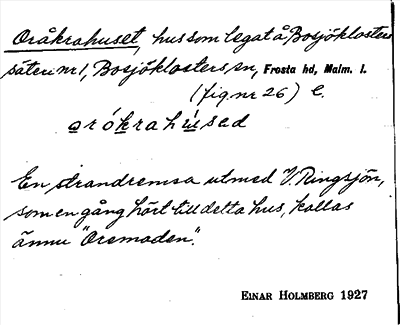 Oråkrahuset, hus som legat å Bosjöklosters
säteri nr 1, Bosjöklosters sn, Frosta hd, Malm. l.
(fig nr 26) C.
orókrahúsed
En strandremsa utmed V. Ringsjön,
som en gång hört till detta hus, kallas
ännu "Oremaden".
EINAR HOLMBERG 1927